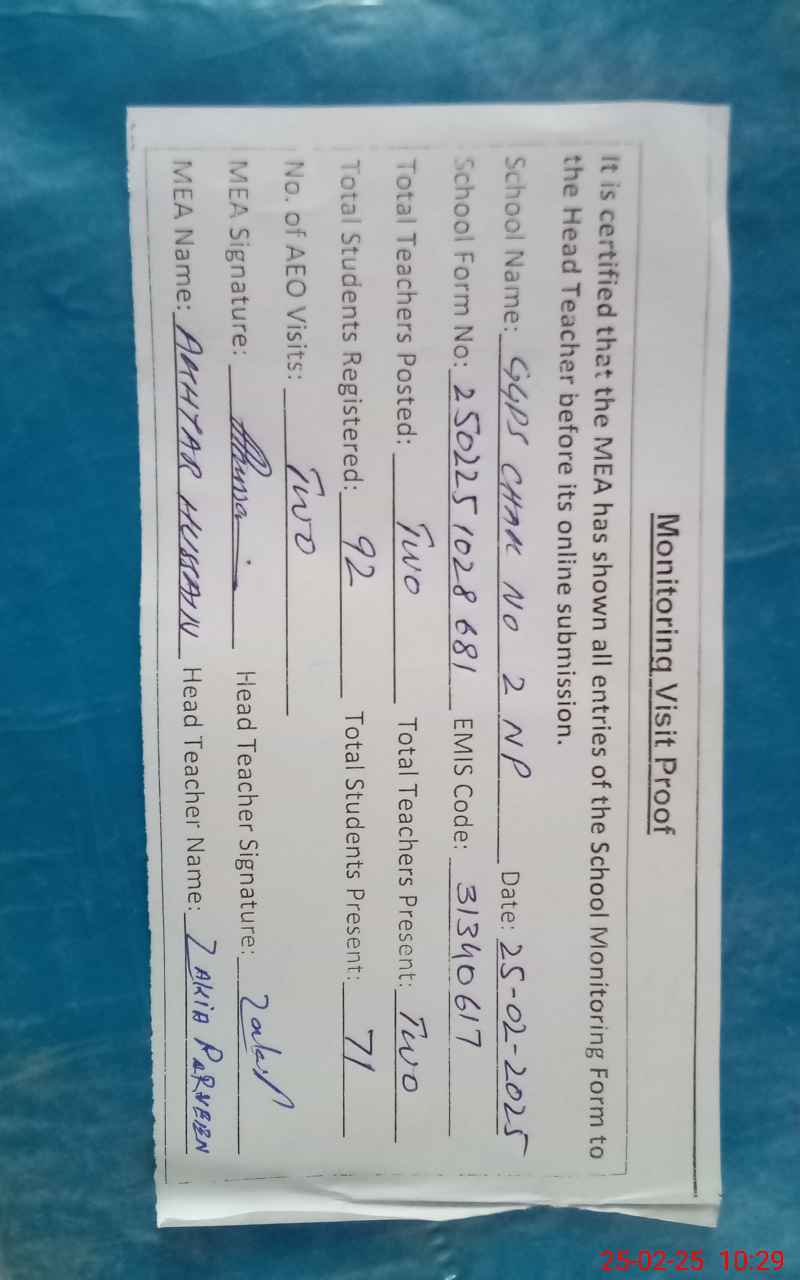 Monitoring Visit Proof
It is certified that the MEA has shown all entries of the School Monitoring Form to
the Head Teacher before its online submission.
School Name: GGPS CHAK NO 2 NP Date: 25-02-2025
School Form No: 250225 1028 681 EMIS Code: 31340617
Total Teachers Posted: Two Total Teachers Present: Two
Total Students Registered: 92 Total Students Present: 71
No. of AEO Visits: Two
MEA Signature: Head Teacher Signature:
MEA Name: AKHTAR HUSSAIN Head Teacher Name: ZAKIA PARVEEN
25-02-25 10:29